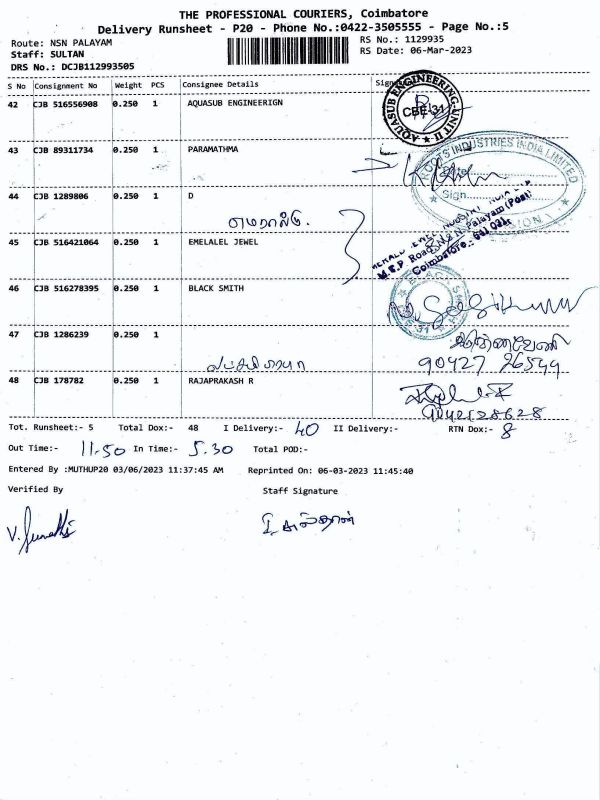 THE PROFESSIONAL COURIERS, Coimbatore
Delivery Runsheet - P20 - Phone No.:0422-3505555 - Page No.:5
Route: NSN PALAYAM
RS No.: 1129935
Staff: SULTAN
RS Date: 06-Mar-2023
DRS No.: DCJB112993505
S No Consignment No Weight PCS Consignee Details Sign
42 CJB 516556908 0.250 1 AQUASUB ENGINEERIGN
AQUASUB ENGINEERING-UNIT II
CBE-31
43 CJB 89311734 0.250 1 PARAMATHMA
INDUSTRIES INDIA LIMITED
Date
Sign
44 CJB 1289806 0.250 1 D
எமரால்டு.
45 CJB 516421064 0.250 1 EMELALEL JEWEL
M.E.P. Road, N.S.N. Palayam (Post)
Coimbatore - 641 031.
46 CJB 516278395 0.250 1 BLACK SMITH
47 CJB 1286239 0.250 1
90427 26544
48 CJB 178782 0.250 1 RAJAPRAKASH R
9042128628
Tot. Runsheet:- 5 Total Dox:- 48 I Delivery:- 40 II Delivery:- RTN Dox:- 8
Out Time:- 11.50 In Time:- 5.30 Total POD:-
Entered By :MUTHUP20 03/06/2023 11:37:45 AM Reprinted On: 06-03-2023 11:45:40
Verified By Staff Signature